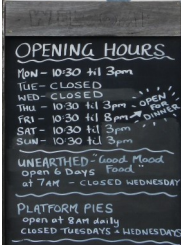 OPENING HOURS
MON - 10:30 til 3pm
TUE - CLOSED
WED - CLOSED
THU - 10:30 til 3pm
FRI - 10:30 til 8pm
SAT - 10:30 til 3pm
SUN - 10:30 til 3pm
OPEN
FOR
DINNER
UNEARTHED - "Good Mood
open 6 Days Food"
at 7AM - CLOSED WEDNESDAY
PLATFORM PIES
open at 8am daily
CLOSED TUESDAYS & WEDNESDAYS